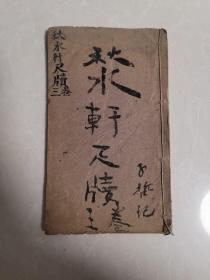 秋水軒尺牘卷三
秋水軒尺牘卷三
子權記